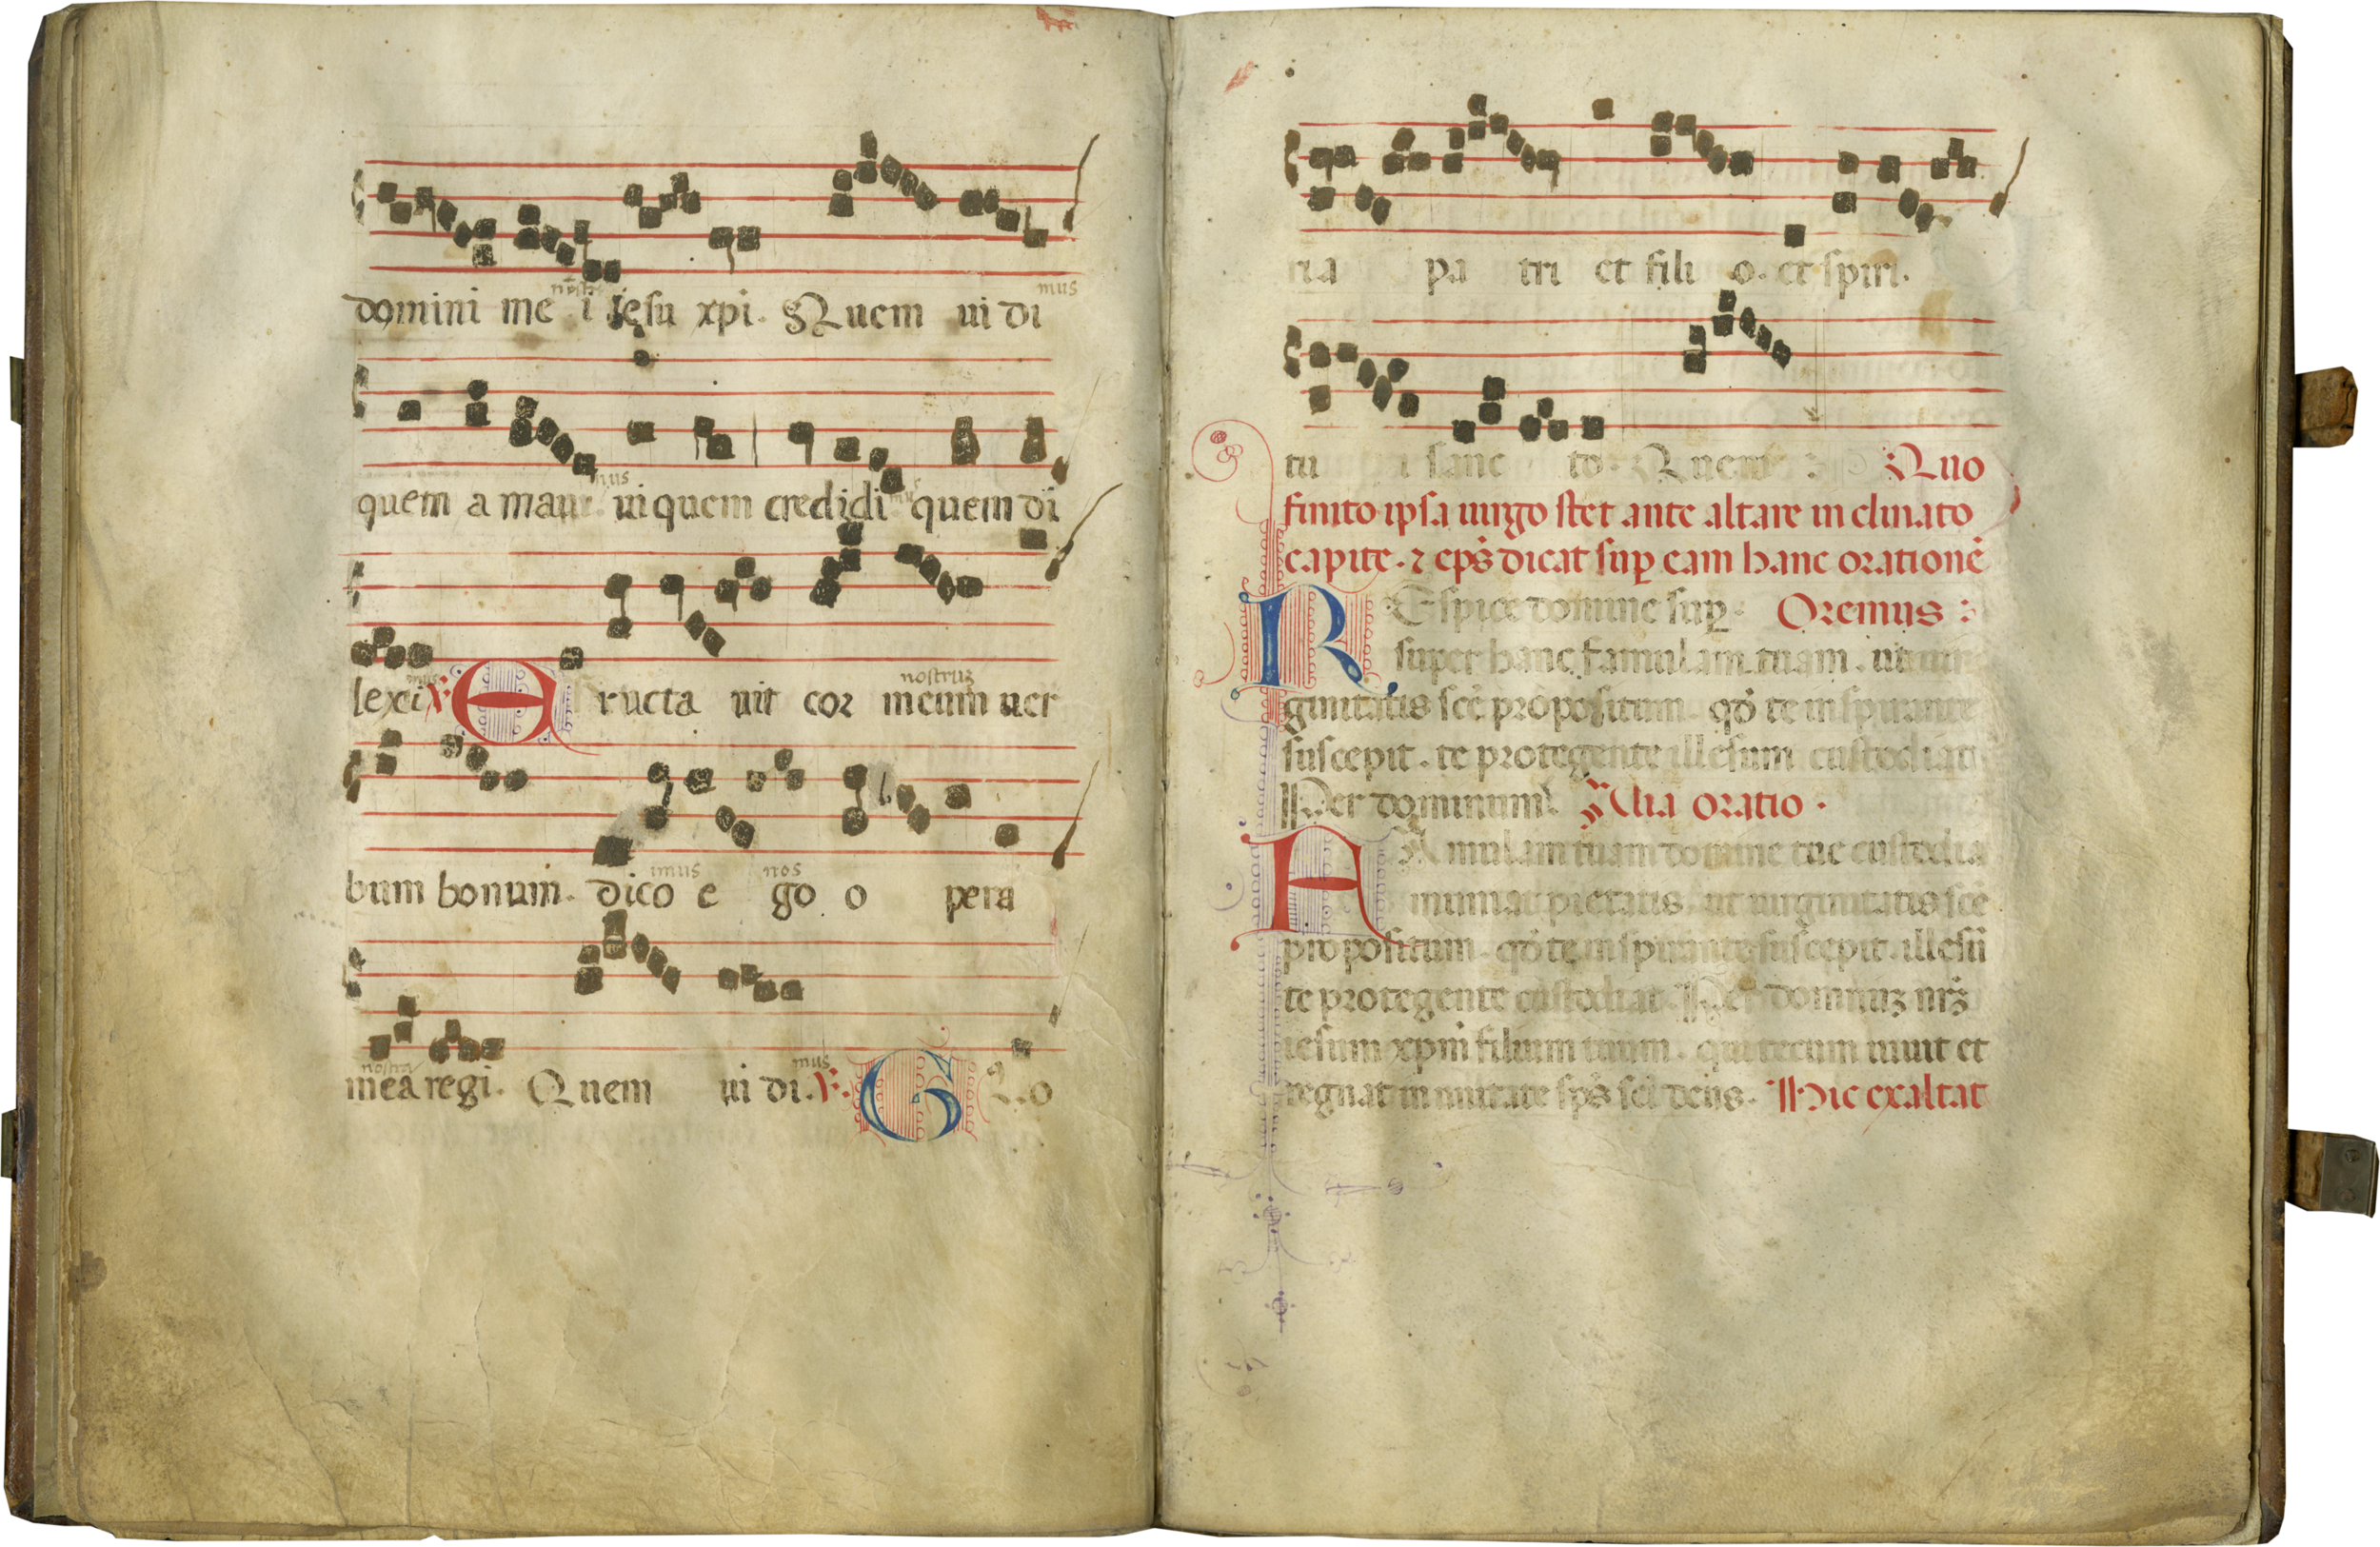 nostri mus
domini me i iesu xpi. Quem ui di
mus mus
quem a maui. in quem credidi quem di
mus nostrum
lexi. V. Eructa uit cor meum uer
imus nos
bum bonum. dico e go o pera
nostra mus
mea regi. Quem ui di. V. Glo
ria pa tri et fili o. et spiri.
tu i sanc to. Quem : Quo
finito ipsa uirgo stet ante altare inclinato
capite. ⁊ ep̄s dicat sup̱ eam hanc orationē
REspice domine sup̱. Oremus :
super hanc famulam tuam. ut uir
ginitatis scē propositum. qd̄ te inspirante
suscepit. te protegente illesum custodiat
Per dominum. Alia oratio.
FAmulam tuam domine tue custodia
muniat pietatis ut uirginitatis scē
propositum. qd̄ te inspirante suscepit. illesū
te protegente custodiat. Per dominuꝫ nrꝫ
iesum xpm̄ filium tuum. qui tecum uiuit et
regnat in unitate sp̄s scī deus. Hic exaltat